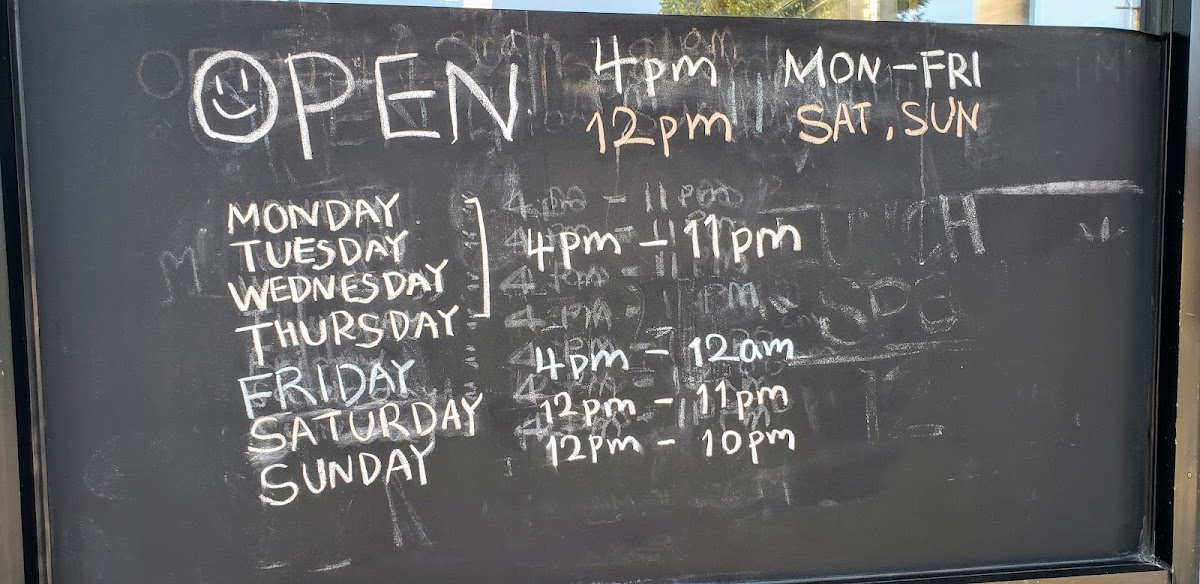 OPEN 4pm MON-FRI
12pm SAT, SUN
MONDAY
TUESDAY 4pm - 11pm
WEDNESDAY
THURSDAY
FRIDAY 4pm - 12am
SATURDAY 12pm - 11pm
SUNDAY 12pm - 10pm